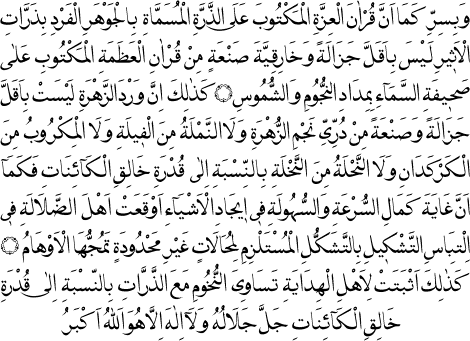 وَبِسِرِّ كَمَا اَنَّ قُرْاٰنَ الْعِزَّةِ الْمَكْتُوبَ عَلَى الذَّرَّةِ الْمُسَمَّاةِ بِالْجَوْهَرِ الْفَرْدِ بِذَرَّاتِ
الْاَثِيرِ لَيْسَ بِاَقَلَّ جَزَالَةً وَخَارِقِيَّةَ صَنْعَةٍ مِنْ قُرْاٰنِ الْعَظَمَةِ الْمَكْتُوبِ عَلٰى
صَحِيفَةِ السَّمَاءِ بِمِدَادِ النُّجُومِ وَالشُّمُوسِ ۞ كَذٰلِكَ اِنَّ وَرْدَ الزَّهْرَةِ لَيْسَتْ بِاَقَلَّ
جَزَالَةً وَصَنْعَةً مِنْ دُرِّىِّ نَجْمِ الزُّهْرَةِ وَلَا النَّمْلَةُ مِنَ الْفِيلَةِ وَلَا الْمِكْرُوبُ مِنَ
الْكَرْكَدَانِ وَلَا النَّحْلَةُ مِنَ النَّخْلَةِ بِالنِّسْبَةِ اِلٰى قُدْرَةِ خَالِقِ الْكَائِنَاتِ فَكَمَا
اَنَّ غَايَةَ كَمَالِ السُّرْعَةِ وَالسُّهُولَةِ فِى اِيجَادِ الْاَشْيَاءِ اَوْقَعَتْ اَهْلَ الضَّلَالَةِ فِى
الْتِبَاسِ التَّشْكِيلِ بِالتَّشَكُّلِ الْمُسْتَلْزِمِ لِمُحَالَاتٍ غَيْرِ مَحْدُودَةٍ تَمُجُّهَا الْاَوْهَامُ ۞
كَذٰلِكَ اَثْبَتَتْ لِاَهْلِ الْهِدَايَةِ تَسَاوِىَ النُّجُومِ مَعَ الذَّرَّاتِ بِالنِّسْبَةِ اِلٰى قُدْرَةِ
خَالِقِ الْكَائِنَاتِ جَلَّ جَلَالُهُ وَلَا اِلٰهَ اِلَّا هُوَ اَللّٰهُ اَكْبَرُ